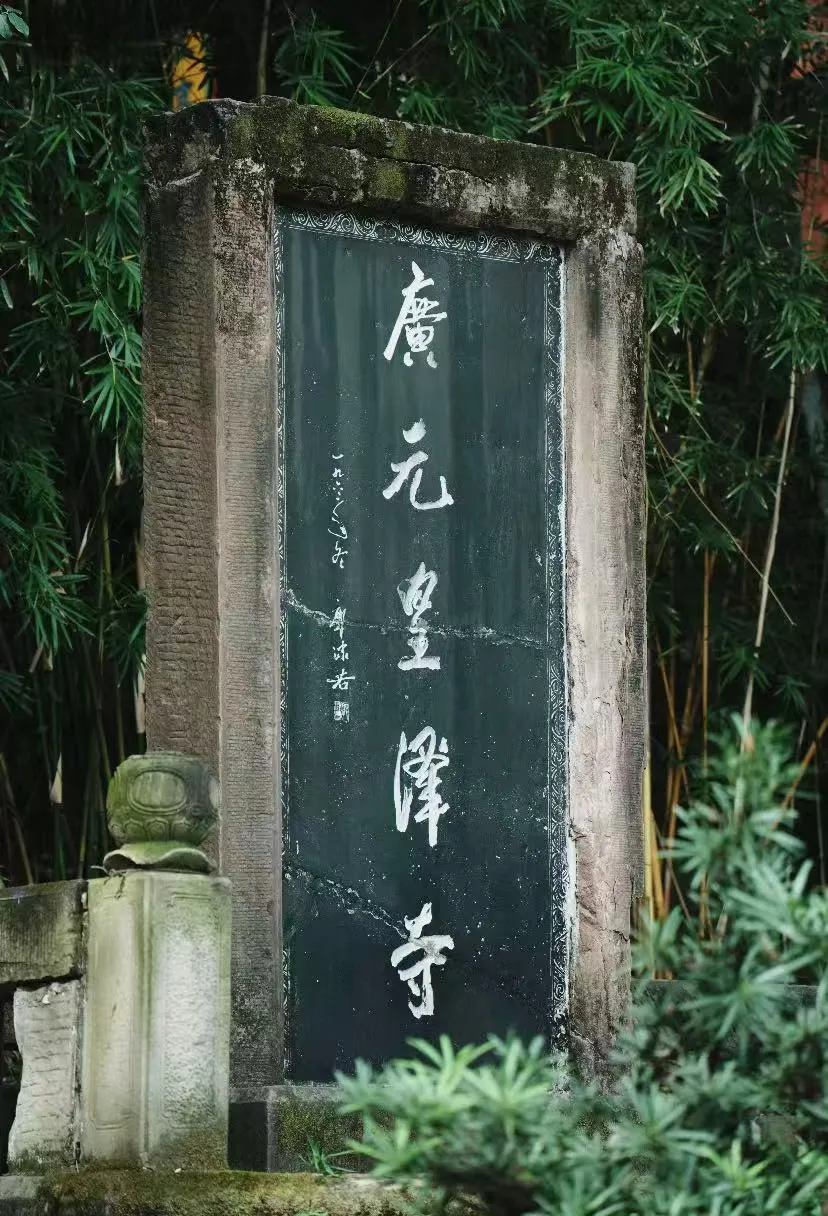 廣元皇澤寺
一九六二年冬 郭沫若